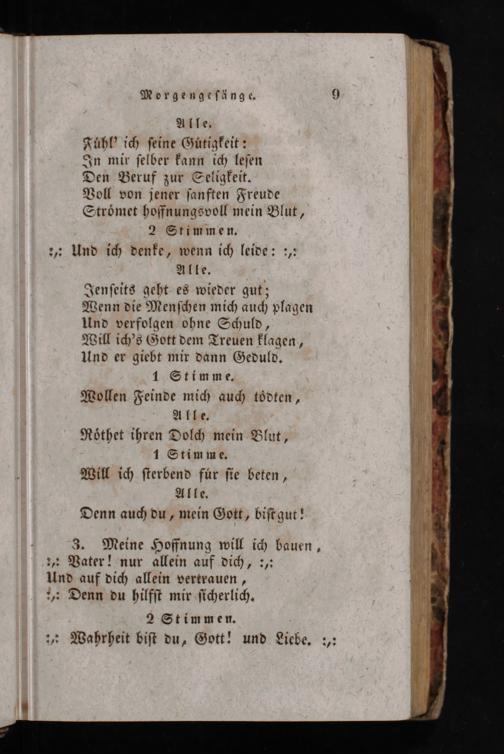 Morgengesänge. 9
Alle.
Fühl' ich seine Gütigkeit:
In mir selber kann ich lesen
Den Beruf zur Seligkeit.
Voll von jener sanften Freude
Strömet hoffnungsvoll mein Blut,
2 Stimmen.
:,: Und ich denke, wenn ich leide: :,:
Alle.
Jenseits geht es wieder gut;
Wenn die Menschen mich auch plagen
Und verfolgen ohne Schuld,
Will ich's Gott dem Treuen klagen,
Und er giebt mir dann Geduld.
1 Stimme.
Wollen Feinde mich auch tödten,
Alle.
Röthet ihren Dolch mein Blut,
1 Stimme.
Will ich sterbend für sie beten,
Alle.
Denn auch du, mein Gott, bist gut!
3. Meine Hoffnung will ich bauen,
:,: Vater! nur allein auf dich, :,:
Und auf dich allein vertrauen,
:,: Denn du hilfst mir sicherlich.
2 Stimmen.
:,: Wahrheit bist du, Gott! und Liebe. :,: